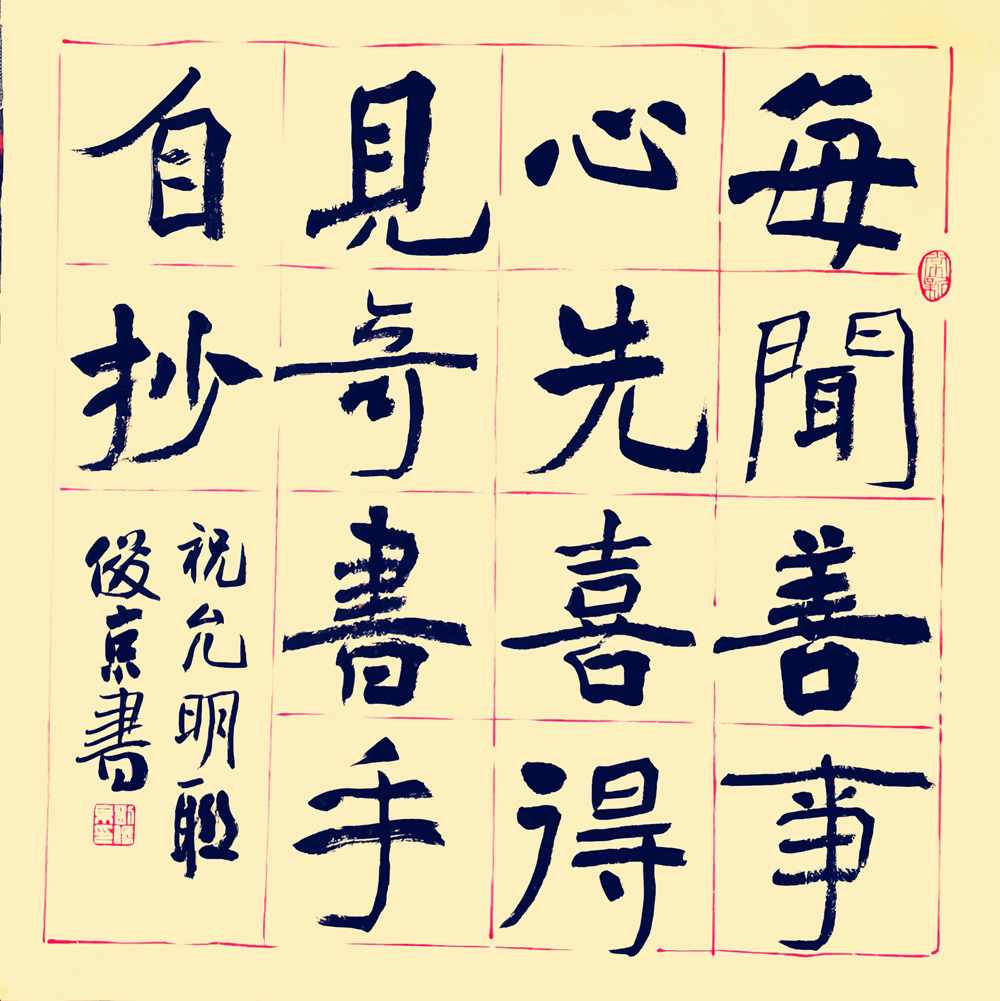 每聞善事
心先喜得
見奇書手
自抄
祝允明聯
俊京書